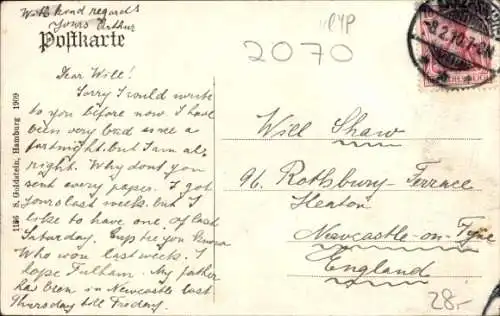 With kind regards
Yours Arthur
Postkarte
Dear Will!
Sorry I could write
to you before now I have
been very bad since a
fortnight. but I am al-
right. Why dont you
sent every paper. I got
yours last week. but I
like to have one of last
Saturday. Cup tie you
Who won last week. I
hope Fulham. My father
has been in Newcastle last
Thursday till Friday.
1156 S. Goldstein, Hamburg 1909
2070
8.2.10.7-8N
Will Shaw
96. Rothsbury-Terrace
Heaton
Newcastle-on-Tyne
England
28.-